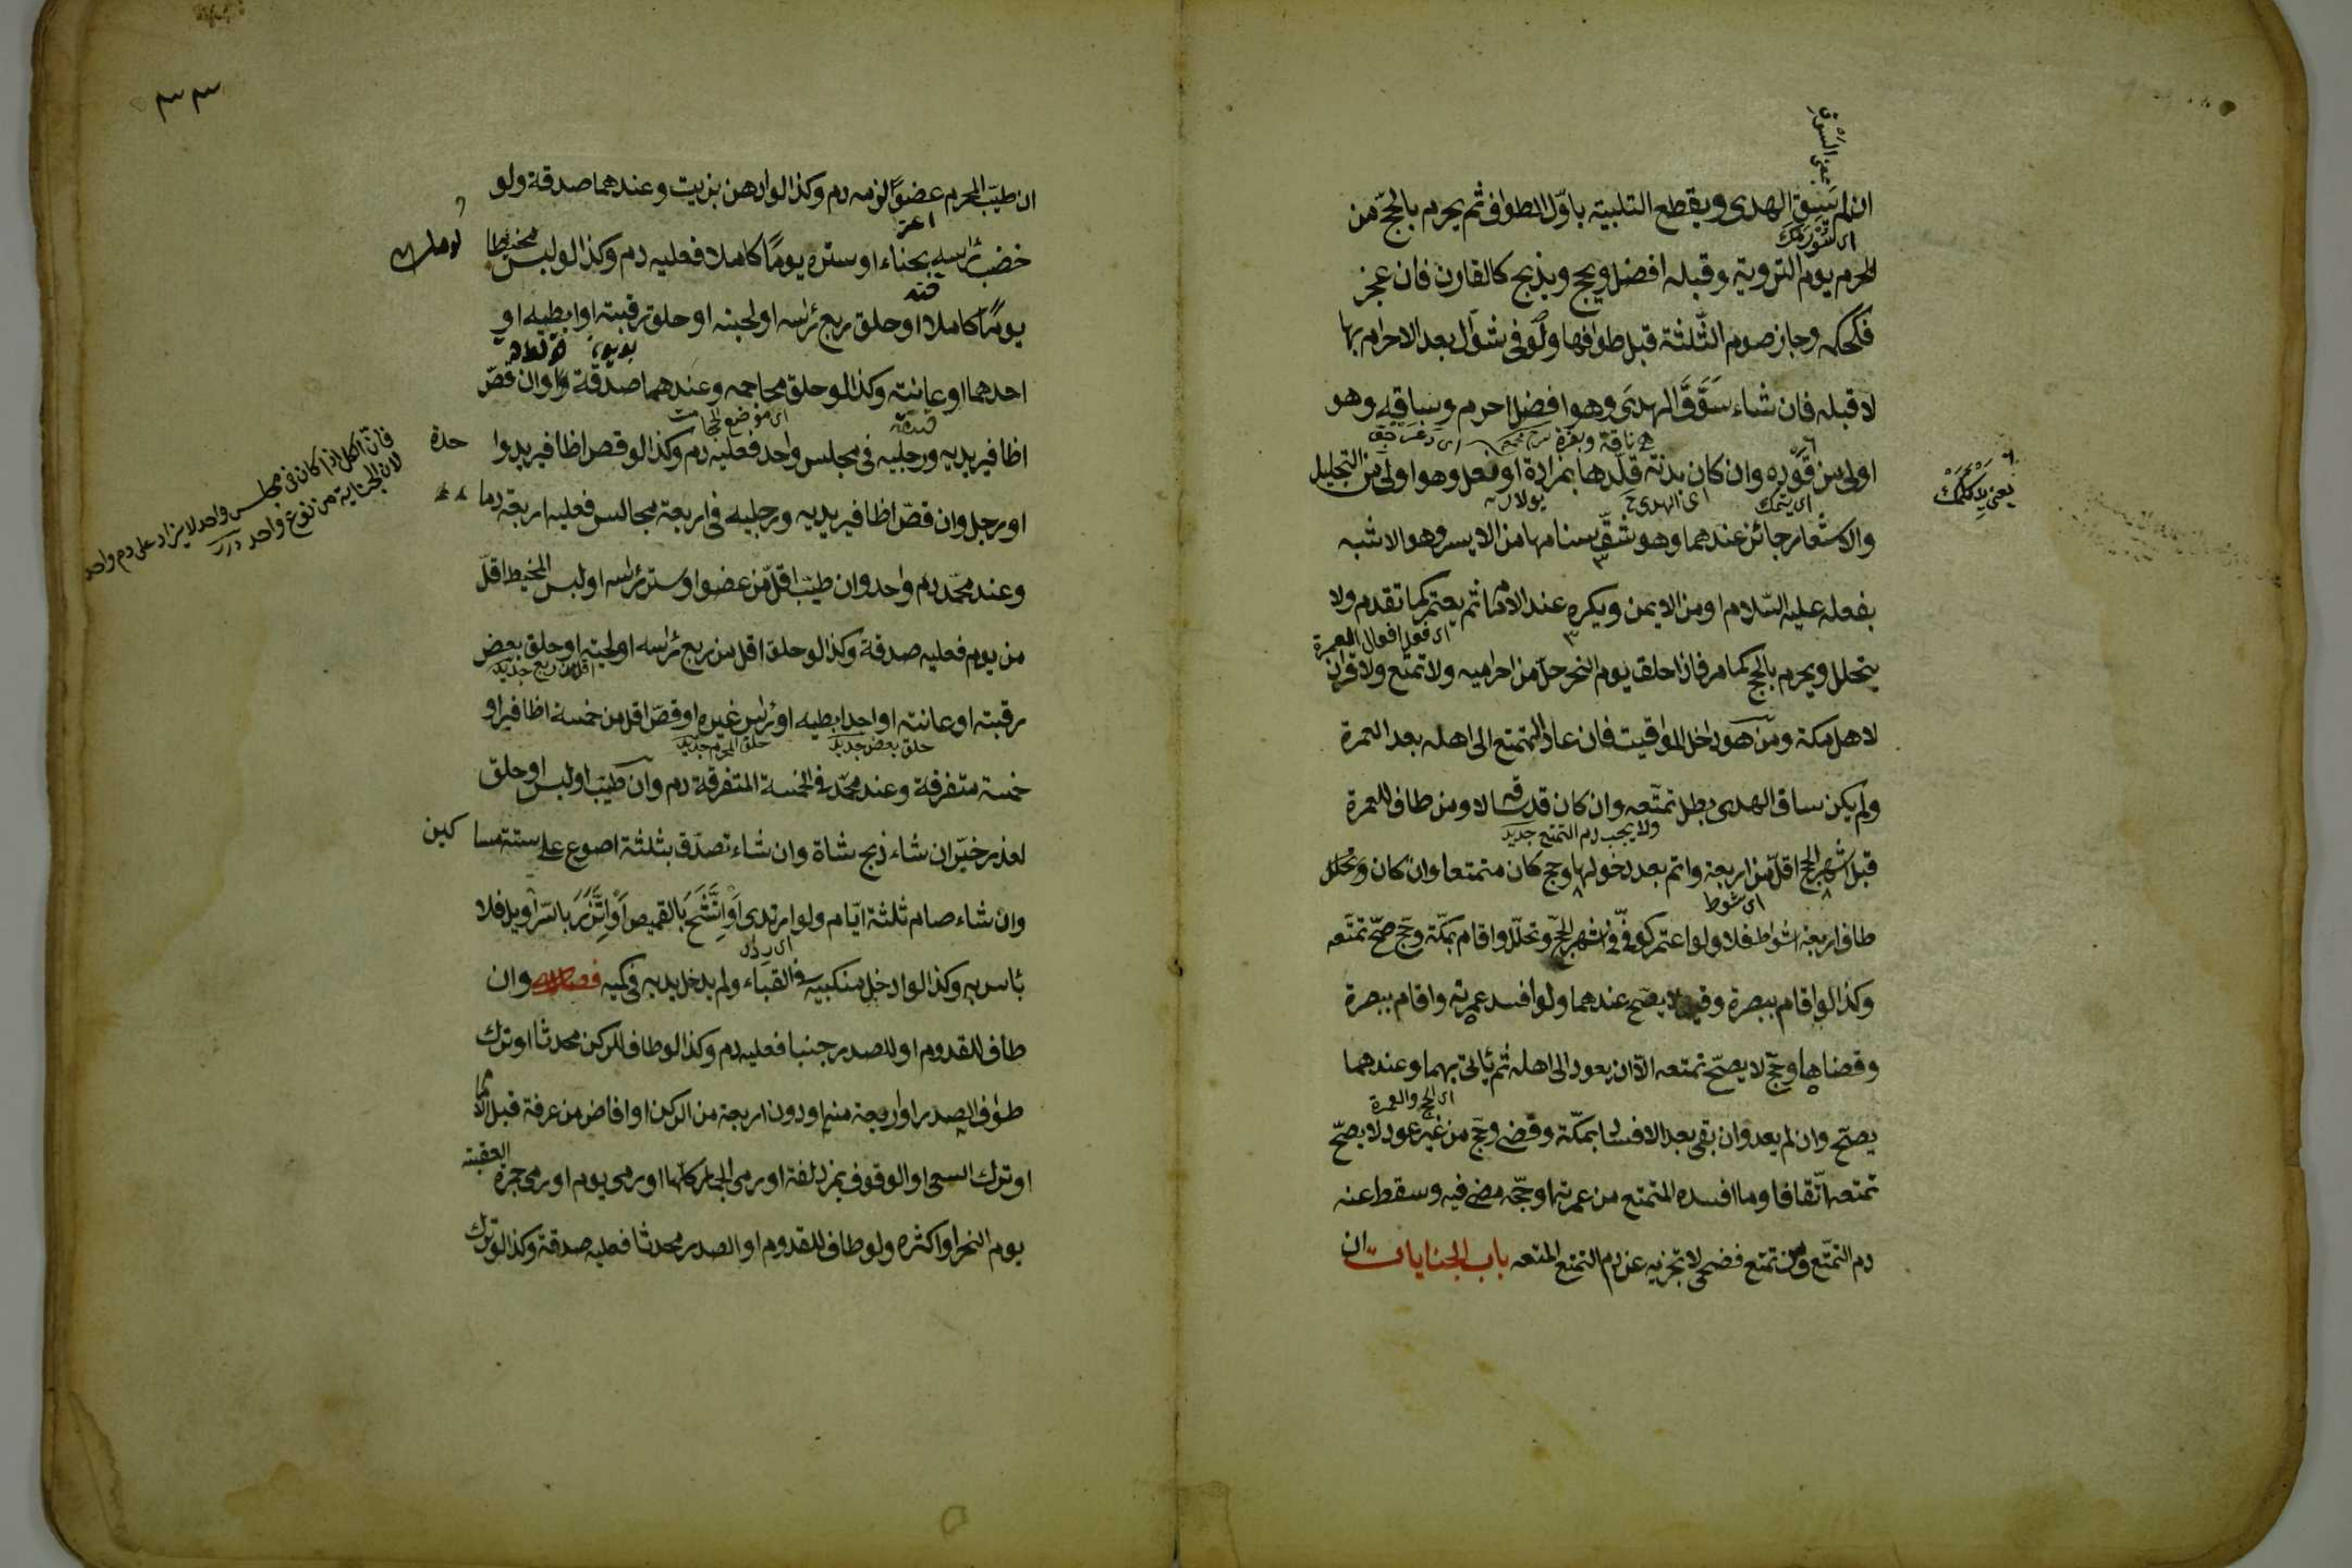 ان لم يسق الهدى ويقطع التلبية باوّل الطواف ثم يحرم بالحجّ من
الحرم يوم التروية وقبله افضل ويحج ويذبح كالقارن فان عجز
فكحكمه وجاز صوم الثّلثة قبل طوافها ولو فى شوّال بعد الاحرام بها
لا قبله فان شاء سَوْقَ الهدىَ وهو افضل احرم وساقه وهو
اى ناقة وبقرة
اولى من قَوْده وان كان بدنة قلّدها بمزادة او نعل وهو اولى من التجليل
والاشعار جائز عندهما وهو شقّ سنامها من الايسر وهو الاشبه
بفعله عليه السّلام او من الايمن ويكره عند الامام ثم يعتمر كما تقدم ولا
اى فعل افعال العمرة
يتحلل ويحرم بالحج كما مر فاذا حلق يوم النحر حلّ من احراميه ولا تمتّع ولا قران
لاهل مكة ومن هو داخل المواقيت فان عاد المتمتع الى اهله بعد العمرة
ولم يكن ساق الهدى بطل تمتّعه وان كان قد ساقه لا ومن طاف للعمرة
ولا يجب دم التمتع جديد
قبل اشهر الحج اقلّ من اربعة واتم بعد دخولها وحج كان متمتعا وان كان
اى شوط
طاف اربعة اشواط فلا ولو اعتمر كوفىّ فى اشهر الحجّ وتحلّل واقام بمكّة وحجّ صحّ تمتّعه
وكذا لو اقام ببصرة وقيل لا يصحّ عندهما ولو افسد عمرته واقام ببصرة
وقضاها وحجّ لا يصحّ تمتعه الّا ان يعود الى اهله ثم يأتى بهما وعندهما
اى الحج والعمرة
يصحّ وان لم يعد وان بقى بعد الافساد بمكّة وقضى وحجّ من غير عود لا يصحّ
تمتعه اتّفاقا وما افسده المتمتع من عمرته او حجّه مضى فيه وسقط عنه
دم التمتّع ومن تمتع فضحى لا تجزيه عن دم التمتع المتعه باب الجنايات ان
٣٣
ان طيّب المحرم عضوًا لزمه دم وكذا لو ادهن بزيت وعندهما صدقة ولو
خضب رأسه بحناء او ستره يومًا كاملا فعليه دم وكذا لو لبس مخيطا
يومًا كاملا او حلق ربع رأسه او لحيته او حلق رقبته او ابطيه او
احدهما او عانته وكذا لو حلق محاجمه وعندهما صدقة وان قصّ
اى موضع الحجامت
اظافير يديه ورجليه فى مجلس واحد فعليه دم وكذا لو قص اظافير يد
او رجل وان قصّ اظافير يديه ورجليه فى اربعة مجالس فعليه اربعة دما
فان الكل اذا كان فى مجلس واحد لا يزاد على دم واحد
لان الجناية من نوع واحد درر
وعند محمّد دم واحد وان طيّب اقلّ من عضو او ستر رأسه او لبس المخيط اقلّ
من يوم فعليه صدقة وكذا لو حلق اقل من ربع رأسه او لحيته او حلق بعض
اقل من ربع جديد
رقبته او عانته او احد ابطيه او رأس غيره او قصّ اقل من خمسة اظافير او
حلق بعض جديد
حلق المحرم جديد
خمسة متفرقة وعند محمّد فى الخمسة المتفرقة دم وان طيّب او لبس او حلق
لعذر خيّر ان شاء ذبح شاة وان شاء تصدّق بثلثة اصوع على ستة مساكين
وان شاء صام ثلثة ايّام ولو ارتدى او اتّشح بالقميص او اتّزر بالسّراويل فلا
بأس به وكذا لو ادخل منكبيه فى القباء ولم يدخل يديه فى كميه فصل وان
طاف للقدوم او للصدر جنبا فعليه دم وكذا لو طاف للركن محدثا او ترك
طواف الصدر او اربعة منه او دون اربعة من الركن او افاض من عرفة قبل الامام
او ترك السعى او الوقوف بمزدلفة او رمى الجمار كلّها او رمى يوم او رمى جمرة العقبة
يوم النحر او اكثره ولو طاف للقدوم او الصدر محدثا فعليه صدقة وكذا لو ترك